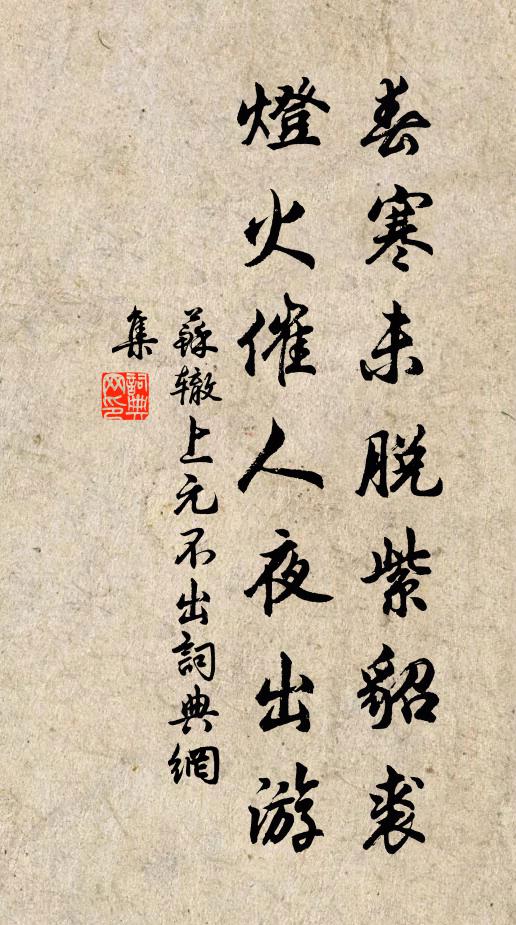 春寒未脫紫貂裘
燈火催人夜出游
蘇辙上元不出詞典網
集
詞典
网印